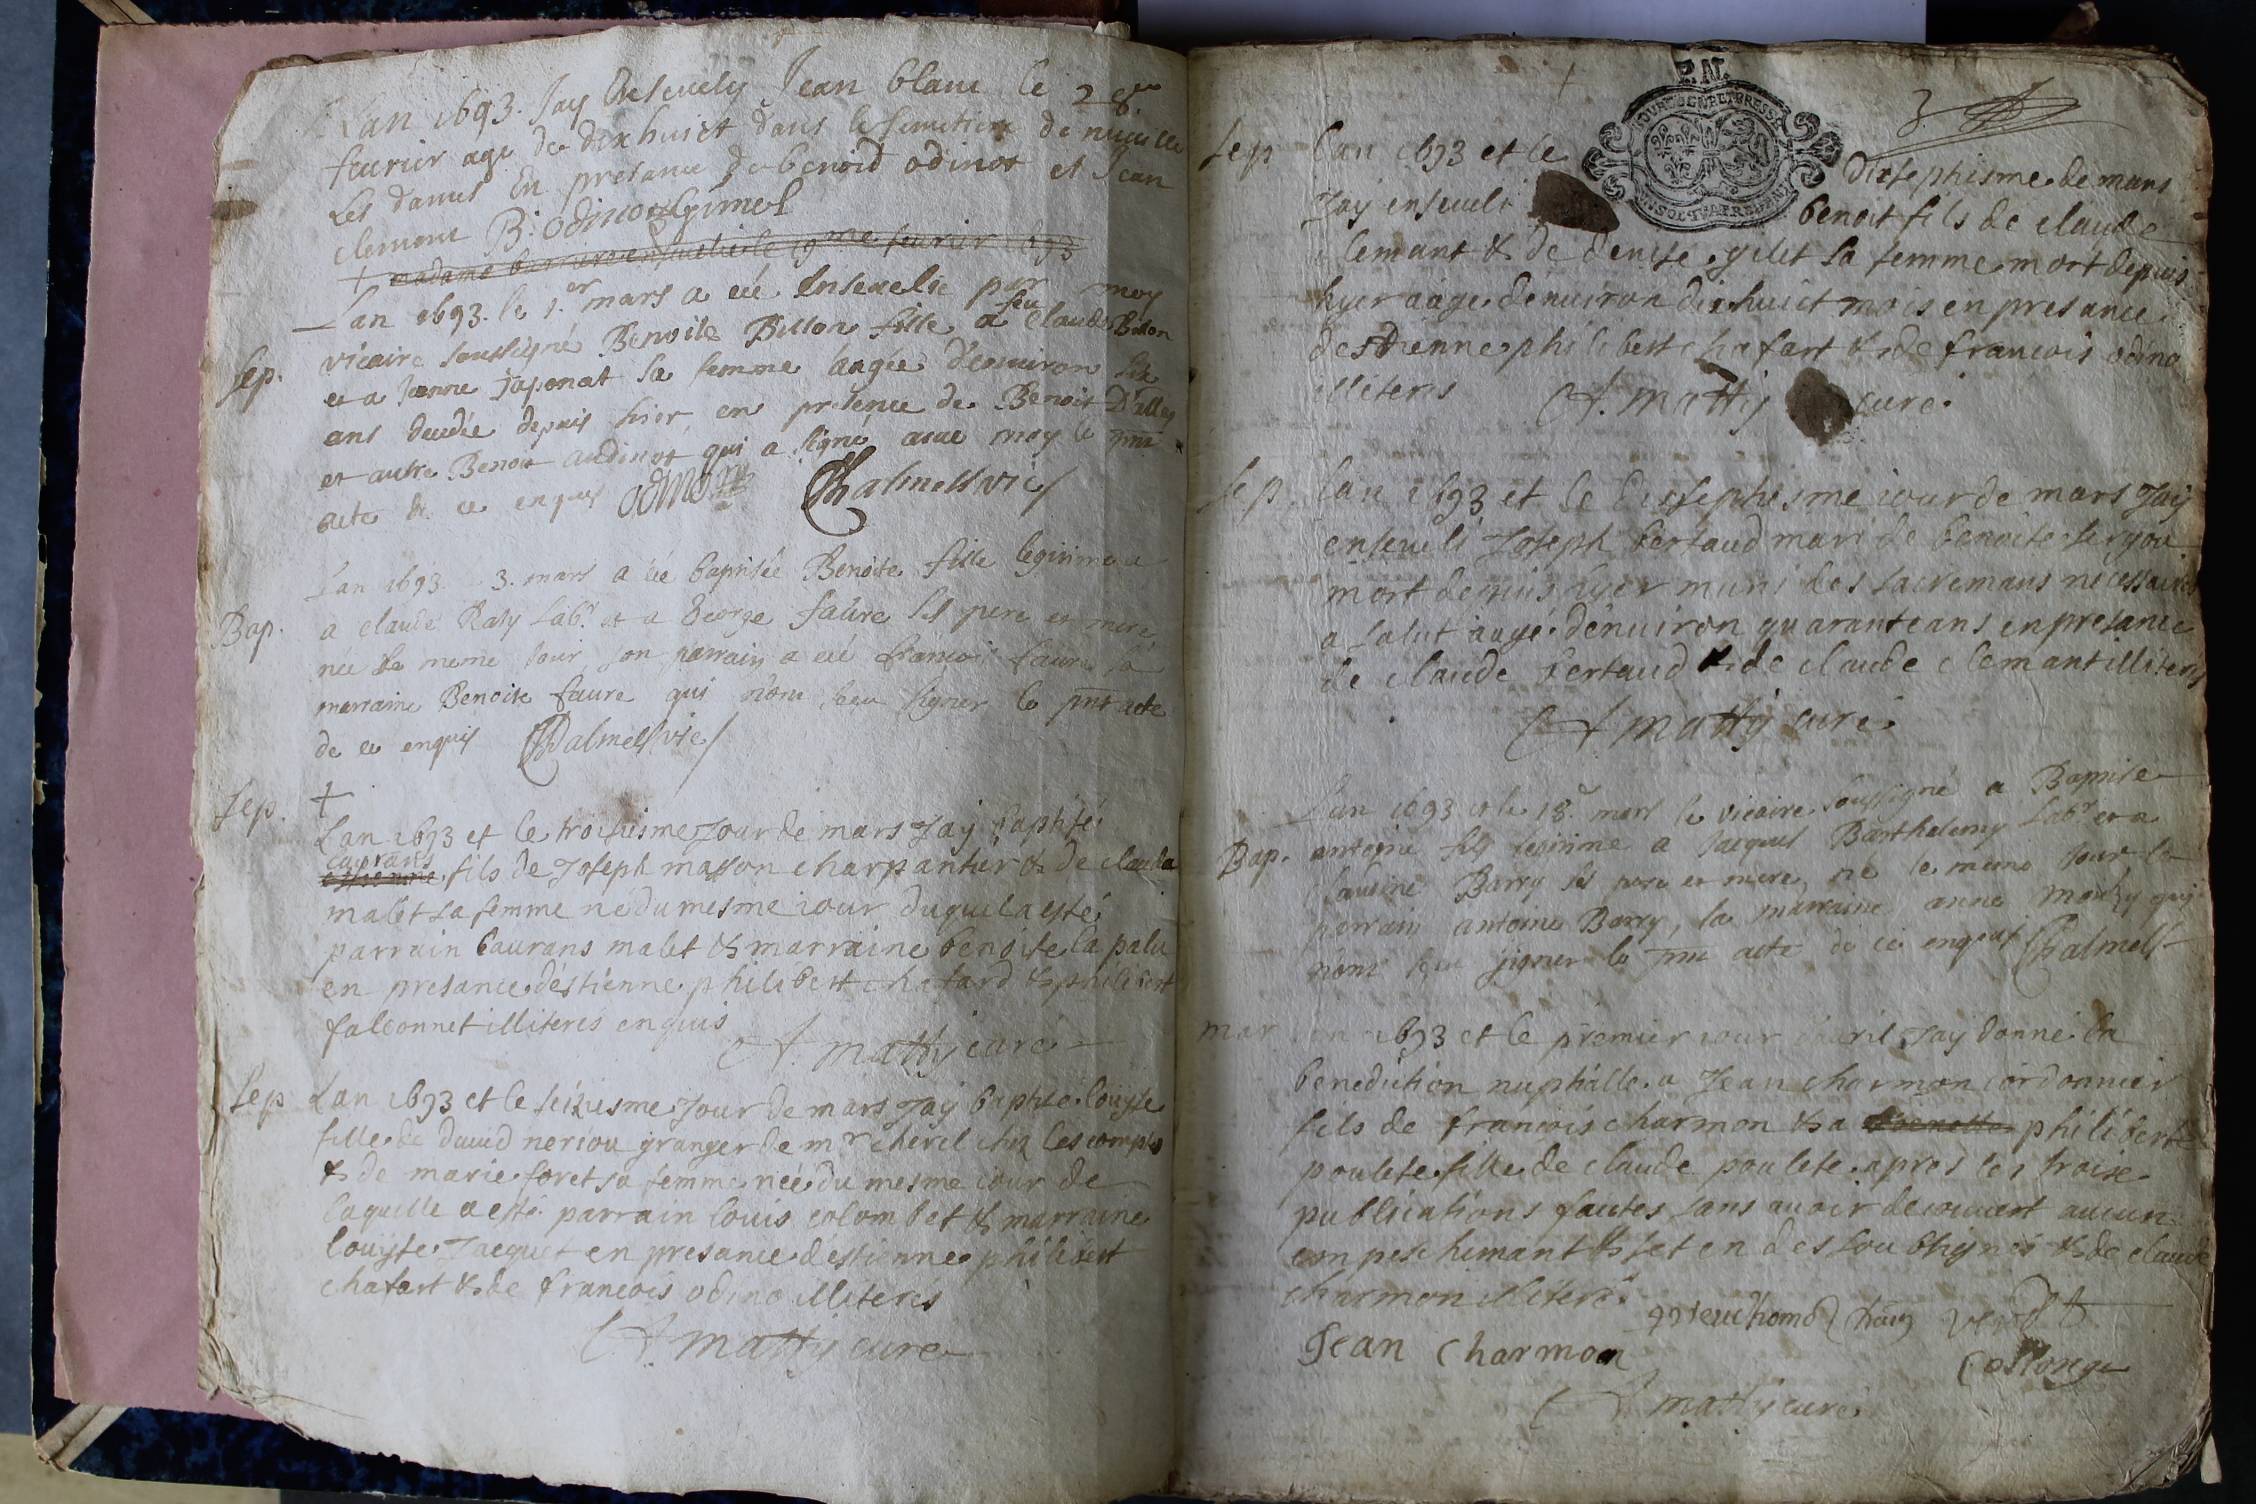 Lan 1693. Jay Ensevely Jean blanc le 28me
feurier age de dixhuict dans le simetiere de
Les dames En presance de benoid odinot et Jean
clement B. odinot gimel
+ madame enseuelie le 19me feurier 1693
Lan 1693. le 1.er mars a eté Enseuelie par moy
Sep. vicaire soussigné Benoite Billon fille a feu claude Billon
et a Jeanne japonat sa femme aagée d'enuiron six
ans decedée depuis hier en presence de Benoit
et autre Benoit audinot qui a signé auec moy le pnt
acte de ce enquis odinot Chalmel vic
Lan 1693. 3. mars a eté baptisée Benoite fille legitime
Bap. a claude Raty Labr et a George faure ses pere et mere
née le meme jour, son parrain a eté francois faure sa
marraine Benoite faure qui n'ont sceu signer le pnt acte
de ce enquis Chalmel vic
Sep. +
Lan 1693 et le troisiesme Jour de mars Jay baptisé
caurans
estienne fils de Joseph masson charpantier & de clauda
malet sa femme né du mesme iour duquel a esté
parrain caurans malet & marraine benoite la palu
en presance d'estienne philibert chafard & philibert
falconnet illiterés enquis
A. matty curé
Sep Lan 1693 et le seiziesme Jour de mars Jay baptisé louyse
fille de david neriou granger de mr cheuel chez les comptes
& de marie foret sa femme née du mesme iour de
laquelle a esté parrain louis colombet & marraine
louyse Jacquet en presance d'estienne philibert
chafart & de francois odino illiterés
A. matty curé
3.
Sep lan 1693 et le dixsephiesme de mars
Jay enseueli benoit fils de claude
clemant & de denise gilet sa femme mort depuis
hyer aagé denuiron dixhuict mois en presance
destienne philibert chafart & de francois odino
illiterés A. matty curé
Sep. lan 1693 et le dixsephiesme iour de mars Jay
enseueli Joseph bertaud mari de benoite
mort depuis hyer muni des sacremans necessaires
a salut aagé denuiron quarante ans en presance
de claude bertaud & de claude clemant illiterés
A matty curé
Lan 1693 et le 18.e mars le vicaire soussigné a Baptisé
Bap. antoine fils legitime a Jacques Barthelemy Labr et a
claudine Barry ses pere et mere, né le meme jour le
parrain antoine Barry, la marraine anne qui
n'ont sceu signer le pnt acte de ce enquis Chalmel
mar 1693 et le premier iour dauril Jay donné la
benediction nuptialle a Jean charmon cordonnier
fils de francois charmon & a philiberte
poulete fille de claude poulete apres les troise
publications faites sans auoir decouuert aucun
empeschemant & set en des soubsignés & de claude
charmon illiterés
Jean Charmon coslonge
A matty curé